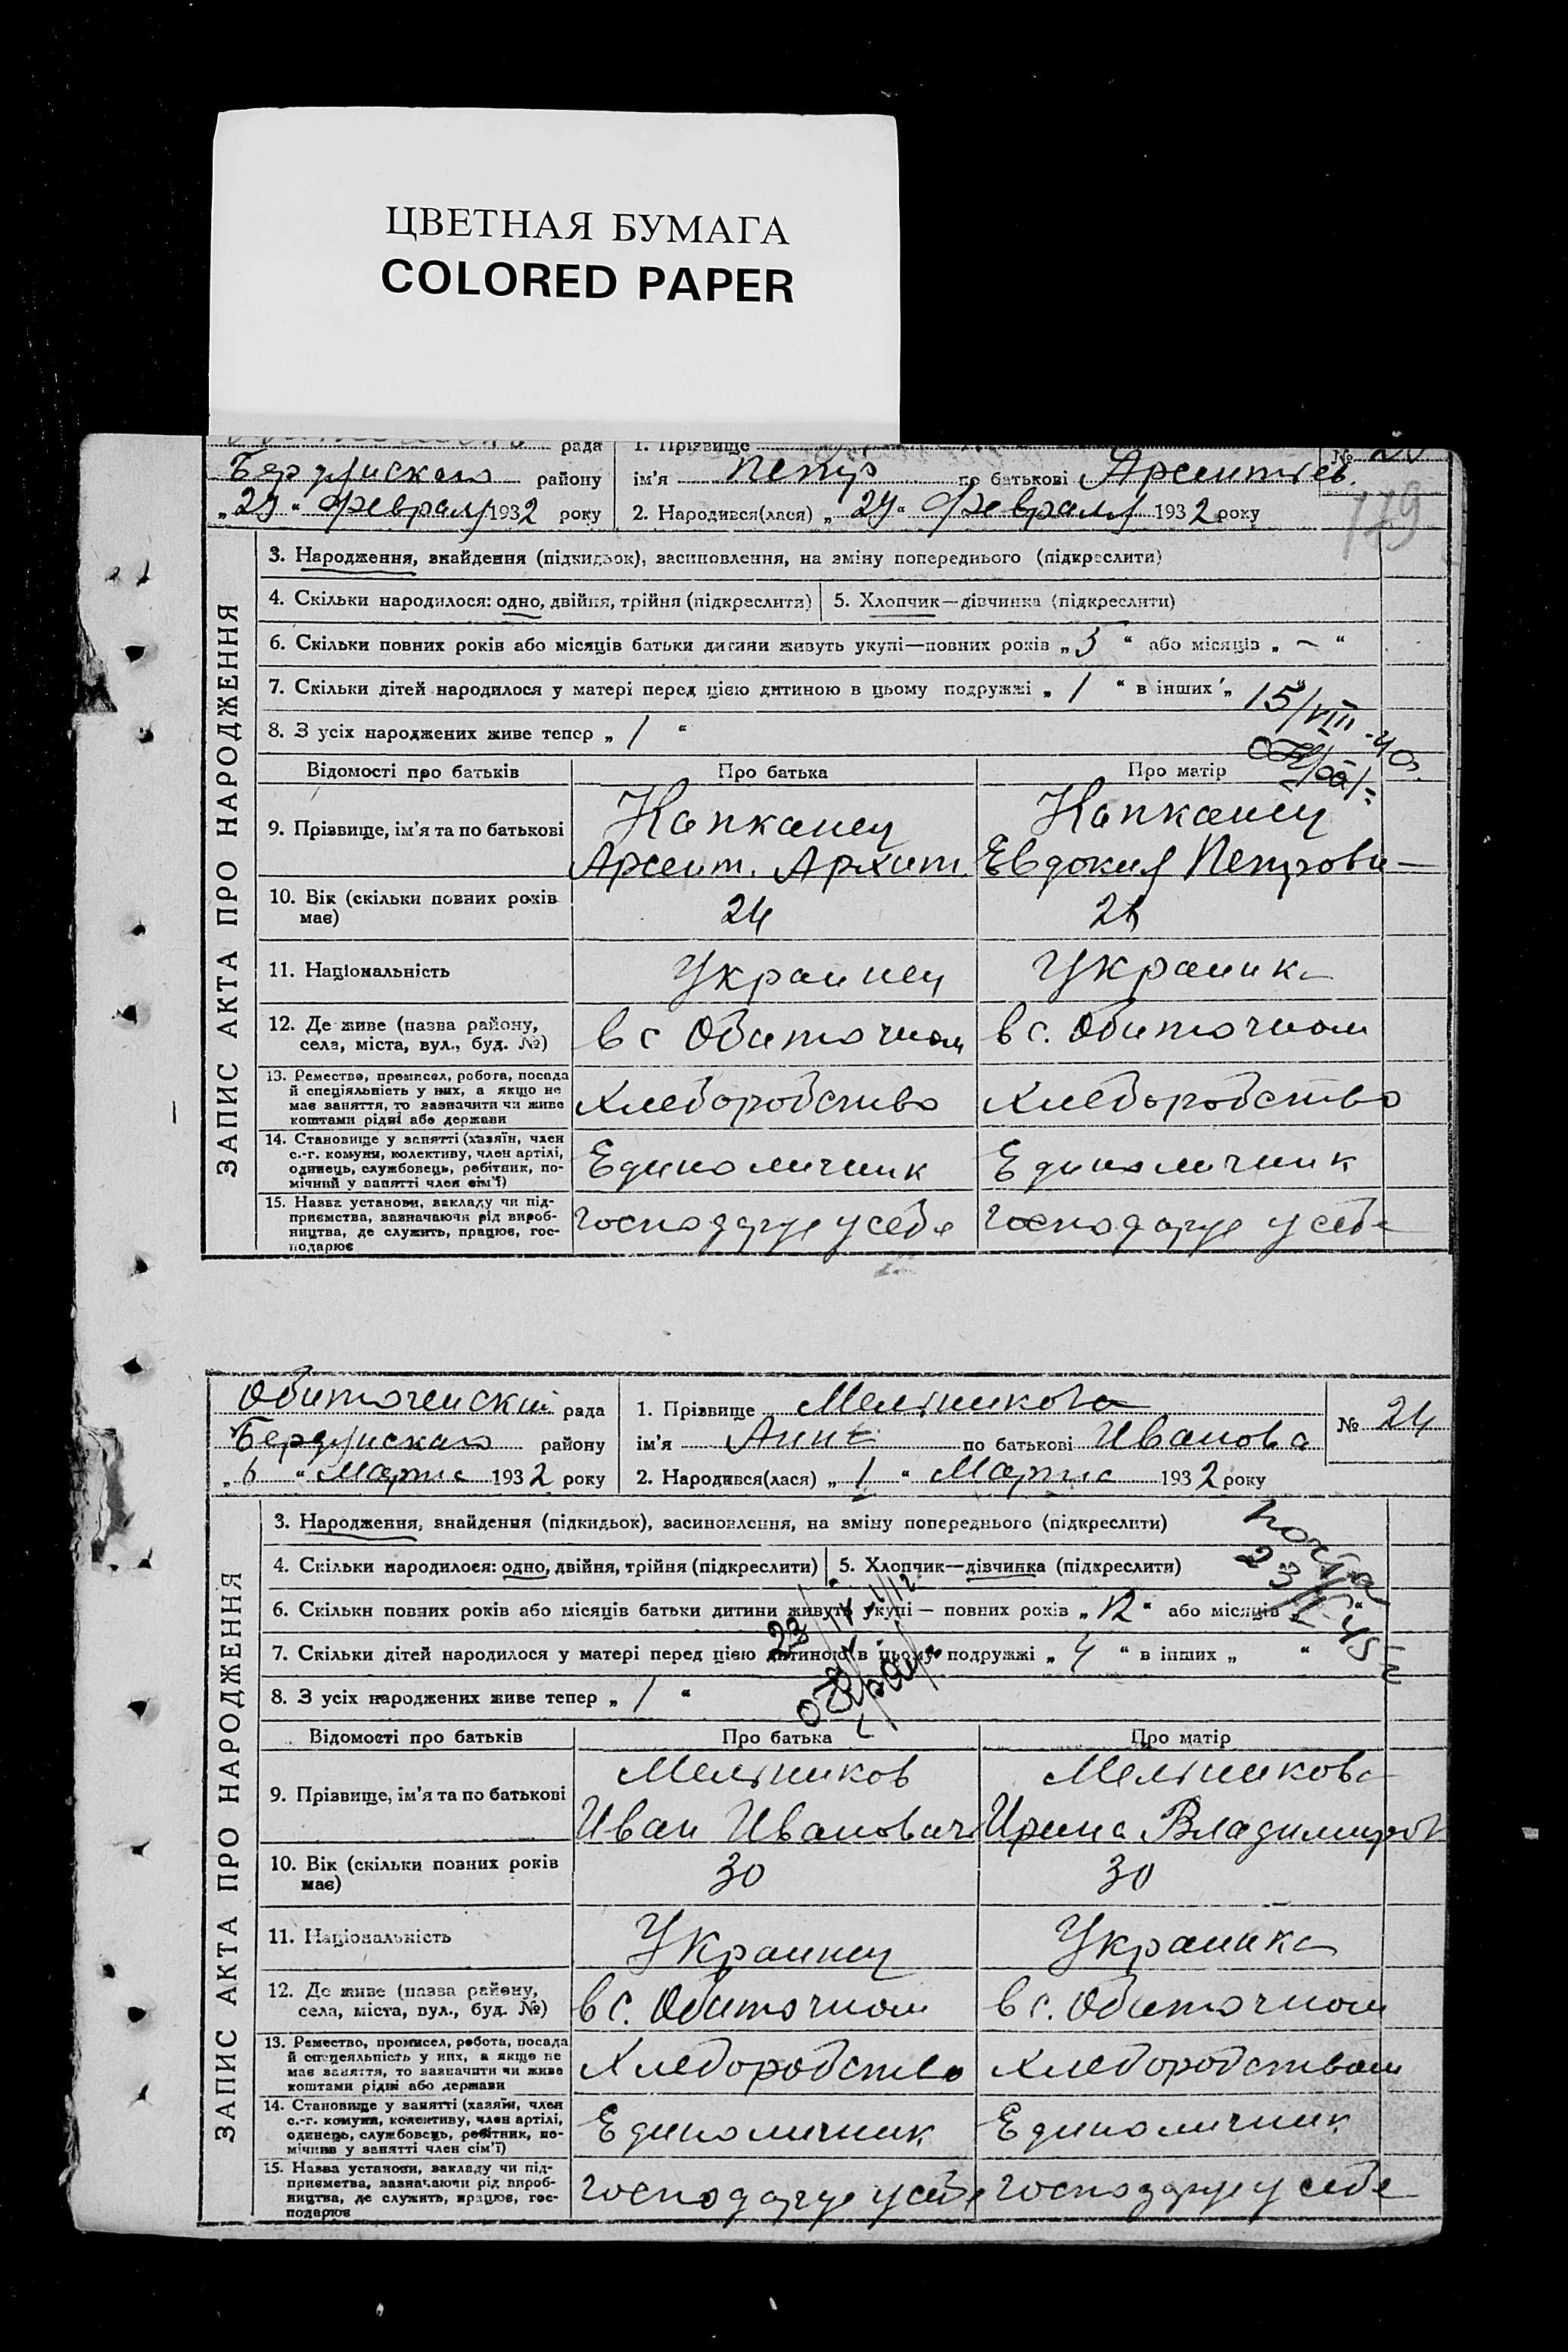 ЦВЕТНАЯ БУМАГА
COLORED PAPER
рада 1. Прізвище №
району ім'я Петр по батькові Арсентьев.
179
„29“ февраля 1932 року 2. Народився(лася) „ “ февраля 1932 року
ЗАПИС АКТА ПРО НАРОДЖЕННЯ
3. Народження, знайдення (підкидьок), засиновлення, на зміну попереднього (підкреслити)
4. Скільки народилося: одно, двійня, трійня (підкреслити) 5. Хлопчик—дівчинка (підкреслити)
6. Скільки повних років або місяців батьки дитини живуть укупі—повних років „5“ або місяців „–“
7. Скільки дітей народилося у матері перед цією дитиною в цьому подружжі „1“ в інших „
15/VIII-40
8. З усіх народжених живе тепер „1“
Відомості про батьків Про батька Про матір
9. Прізвище, ім'я та по батькові Капканец Капканец
Арсент. Архип. Евдокия Петровн
10. Вік (скільки повних років має) 24
11. Національність Украинец Украинка
12. Де живе (назва району, села, міста, вул., буд. №) в с Обиточном в с. Обиточном
13. Ремество, промисел, робота, посада й спеціяльність у них, а якщо не має заняття, то зазначити чи живе коштами рідні або держави Хлеборобство Хлеборобство
14. Становище у занятті (хазяїн, член с.-г. комуни, колективу, член артілі, одинець, службовець, робітник, помічний у занятті член сім'ї) Единоличник Единоличник
15. Назва установи, закладу чи підприємства, зазначаючи рід виробництва, де служить, працює, господарює господарує у себе господарує у себе
Обиточенский рада 1. Прізвище Мельникова № 24
району ім'я Анна по батькові Иванова
„6“ Марта 1932 року 2. Народився(лася) „1“ Марта 1932 року
ЗАПИС АКТА ПРО НАРОДЖЕННЯ
3. Народження, знайдення (підкидьок), засиновлення, на зміну попереднього (підкреслити)
4. Скільки народилося: одно, двійня, трійня (підкреслити) 5. Хлопчик—дівчинка (підкреслити)
6. Скільки повних років або місяців батьки дитини живуть укупі — повних років „12“ або місяців „
7. Скільки дітей народилося у матері перед цією дитиною в цьому подружжі „4“ в інших „ “
8. З усіх народжених живе тепер „1“
Відомості про батьків Про батька Про матір
9. Прізвище, ім'я та по батькові Мельников Мельникова
Иван Иванович Ирина Владимиров
10. Вік (скільки повних років має) 30 30
11. Національність Украинец Украинка
12. Де живе (назва району, села, міста, вул., буд. №) в с. Обиточном в с. Обиточном
13. Ремество, промисел, робота, посада й спеціяльність у них, а якщо не має заняття, то зазначити чи живе коштами рідні або держави Хлеборобство хлеборобством
14. Становище у занятті (хазяїн, член с.-г. комуни, колективу, член артілі, одинець, службовець, робітник, помічний у занятті член сім'ї) Единоличник Единоличник
15. Назва установи, закладу чи підприємства, зазначаючи рід виробництва, де служить, працює, господарює господарує у себе господарує у себе